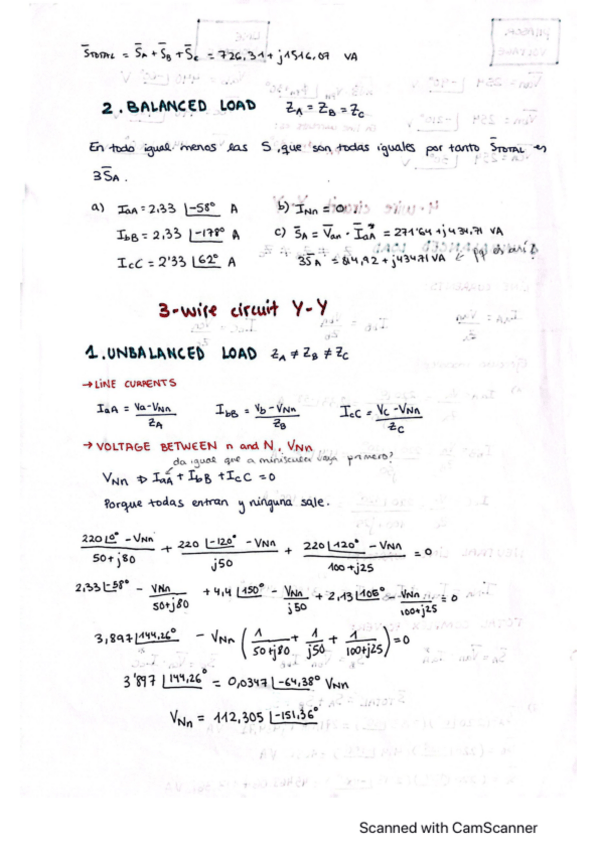 S̄TOTAL = S̄A + S̄B + S̄C = 726,31 + j1516,07 VA
2. BALANCED LOAD ZA = ZB = ZC
En todo igual menos las S, que son todas iguales por tanto S̄TOTAL es
3S̄A.
a) IaA = 2,33 |-58° A
IbB = 2,33 |-178° A
IcC = 2'33 |62° A
b) INn = 0
c) S̄A = V̄an · ĪaA* = 271'64 + j434,71 VA
3S̄A = 814,92 + j434,71 VA
3-wire circuit Y-Y
1. UNBALANCED LOAD ZA ≠ ZB ≠ ZC
→ LINE CURRENTS
IaA = Va-VNn / ZA IbB = Vb-VNn / ZB IcC = Vc-VNn / ZC
→ VOLTAGE BETWEEN n and N, VNn
da igual que a miniscula vaya primero?
VNn ⇒ IaA + IbB + IcC = 0
Porque todas entran y ninguna sale.
220|0° - VNn / 50+j80 + 220|-120° - VNn / j50 + 220|120° - VNn / 100+j25 = 0
2,33|-58° - VNn / 50+j80 + 4,4|150° - VNn / j50 + 2,13|106° - VNn / 100+j25 = 0
3,897|144,26° - VNn (1 / 50+j80 + 1 / j50 + 1 / 100+j25) = 0
3'897|144,26° = 0,0347|-64,38° VNn
VNn = 112,305|-151,36°
Scanned with CamScanner